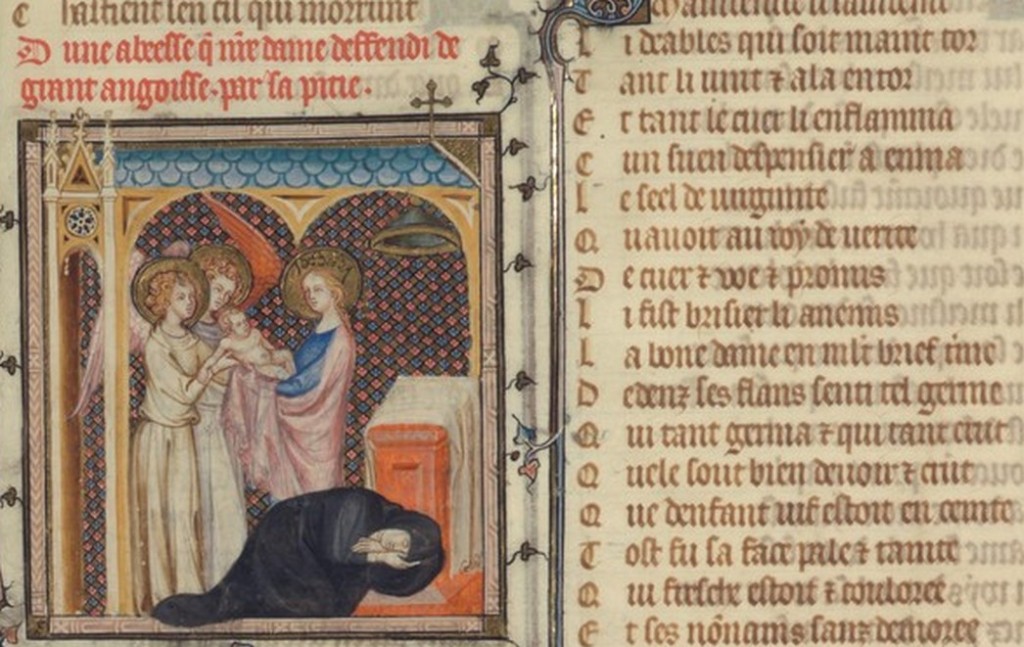 C hastient sen cil qui morront
D une abeesse q̃ nr̃e dame deffendi de
grant angoisse. par sa pitie.
L i deables qui soit maint tor
T ant li vint ⁊ ala entor
E t tant le cuer li enflamma
C un suen despensier a enma
L e seel de virginite
Q uavoit au roy de verite
D e cuer ⁊ voe ⁊ promis
L i fist brisier li anemis
L a bone dame en mlt brief tine
D edenz ses flans senti tel germe
Q ui tant germa ⁊ qui tant crut
Q uele sout bien de voir ⁊ crut
Q ue denfant vif estoit en ceinte
T ost fu sa face pale ⁊ tainte
Q ui fresche estoit ⁊ coulouree
E t ses nõnains sanz demoree